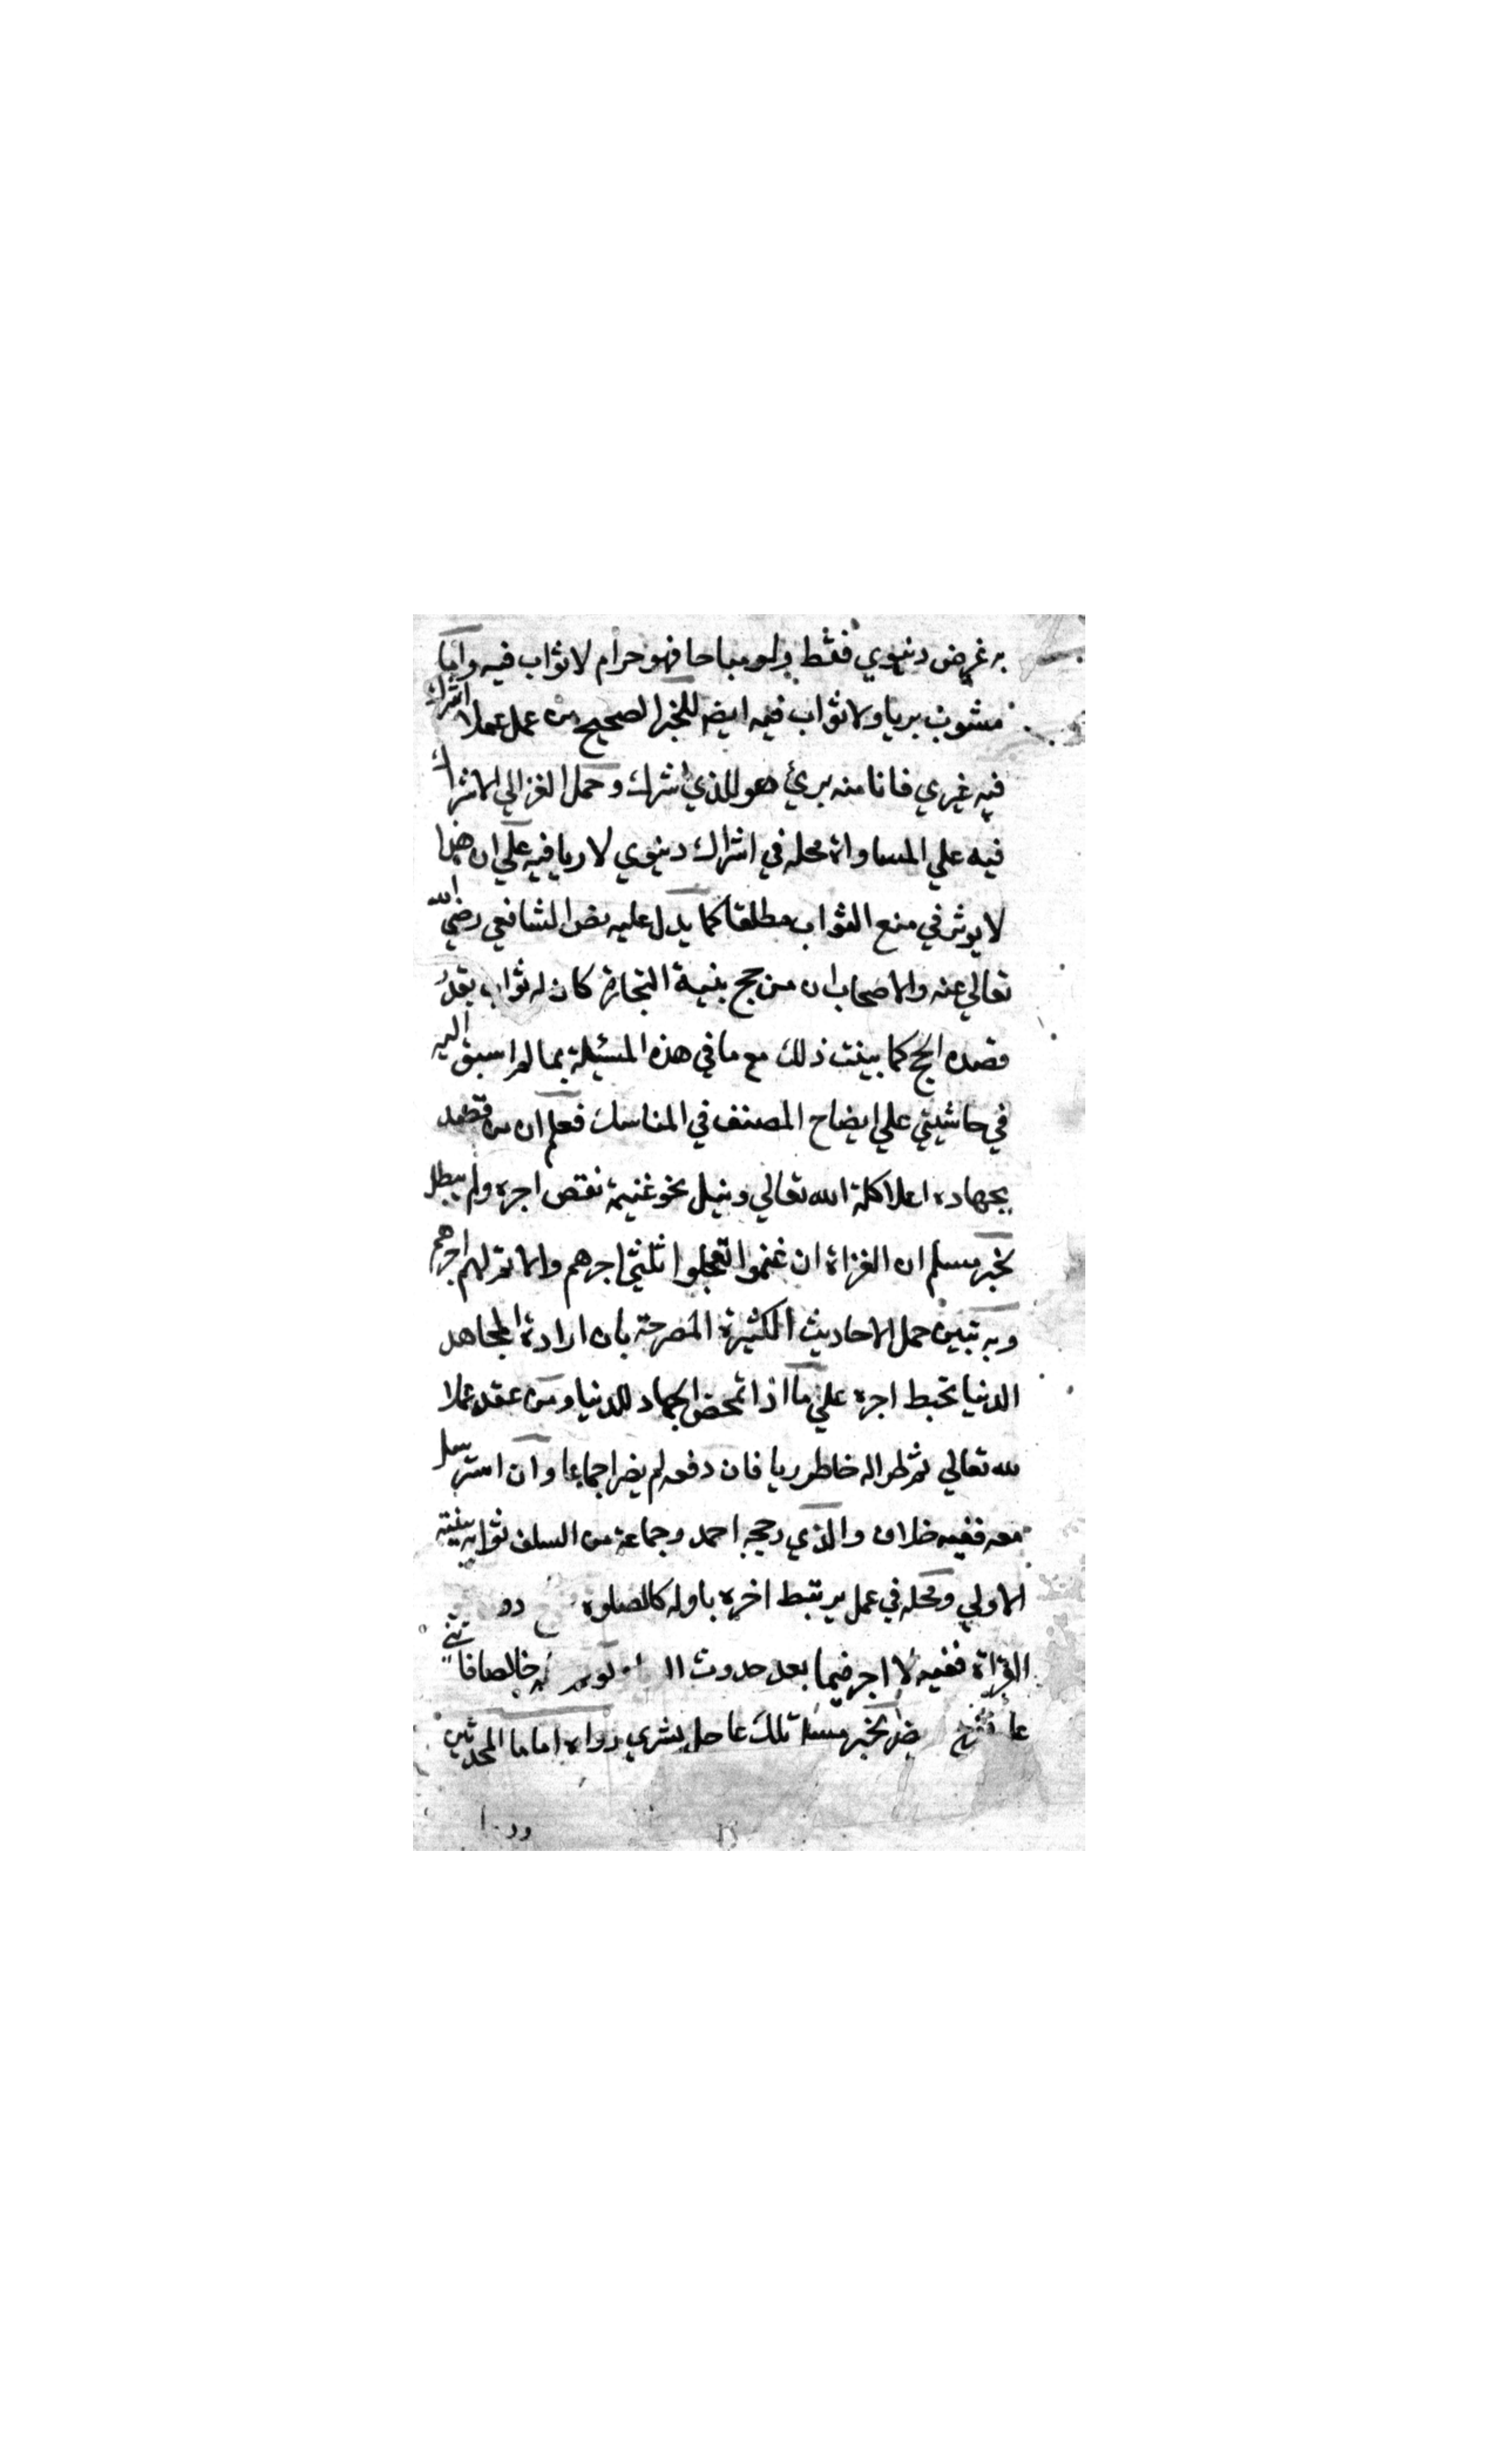 به غرض دنيوي فقط ولو مباحا فهو حرام لا ثواب فيه واما
مشوب بريا ولا ثواب فيه ايضا للخبر الصحيح من عمل عملا اشرك
فيه غيري فانا منه بريء هو للذي اشرك وحمل الغزالي الاشراك
فيه علي المساواة محله في اشراك دنيوي لا ريا فيه علي ان هذا
لا يوثر في منع الثواب مطلقا كما يدل عليه نص الشافعي رضي الله
تعالي عنه والاصحاب ان من حج بنية التجارة كان له ثواب بقدر
قصده الحج كما بينت ذلك مع ما في هذه المسئلة بما لم اسبق اليه
في حاشيتي علي ايضاح المصنف في المناسك فعلم ان من قصد
بجهاده اعلا كلمة الله تعالي ونيل نحو غنيمة نقص اجره ولم يبطل
لخبر مسلم ان الغزاة ان غنموا تعجلوا ثلثي اجرهم والا تم لهم اجرهم
وبه تبين حمل الاحاديث الكثيرة المصرحة بان ارادة المجاهد
الدنيا تحبط اجره علي ما اذا تمحض الجهاد للدنيا ومن عقد عملا
لله تعالي ثم طرا له خاطر ريا فان دفعه لم يضر اجماعا وان استرسل
معه ففيه خلاف والذي رجحه احمد وجماعة من السلف ثوابه بنيته
الاولي ومحله في عمل يرتبط اخره باوله كالصلوة
القراة ففيه لا اجر فيما بعد حدوث خالصا فاثني
لخبر مسلم تلك عاجل بشري رواه اماما المحدثين